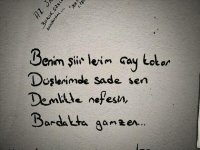 Benim şiirlerim çay kokar
Düşlerimde sade sen
Demlikte nefesin,
Bardakta gamzen...